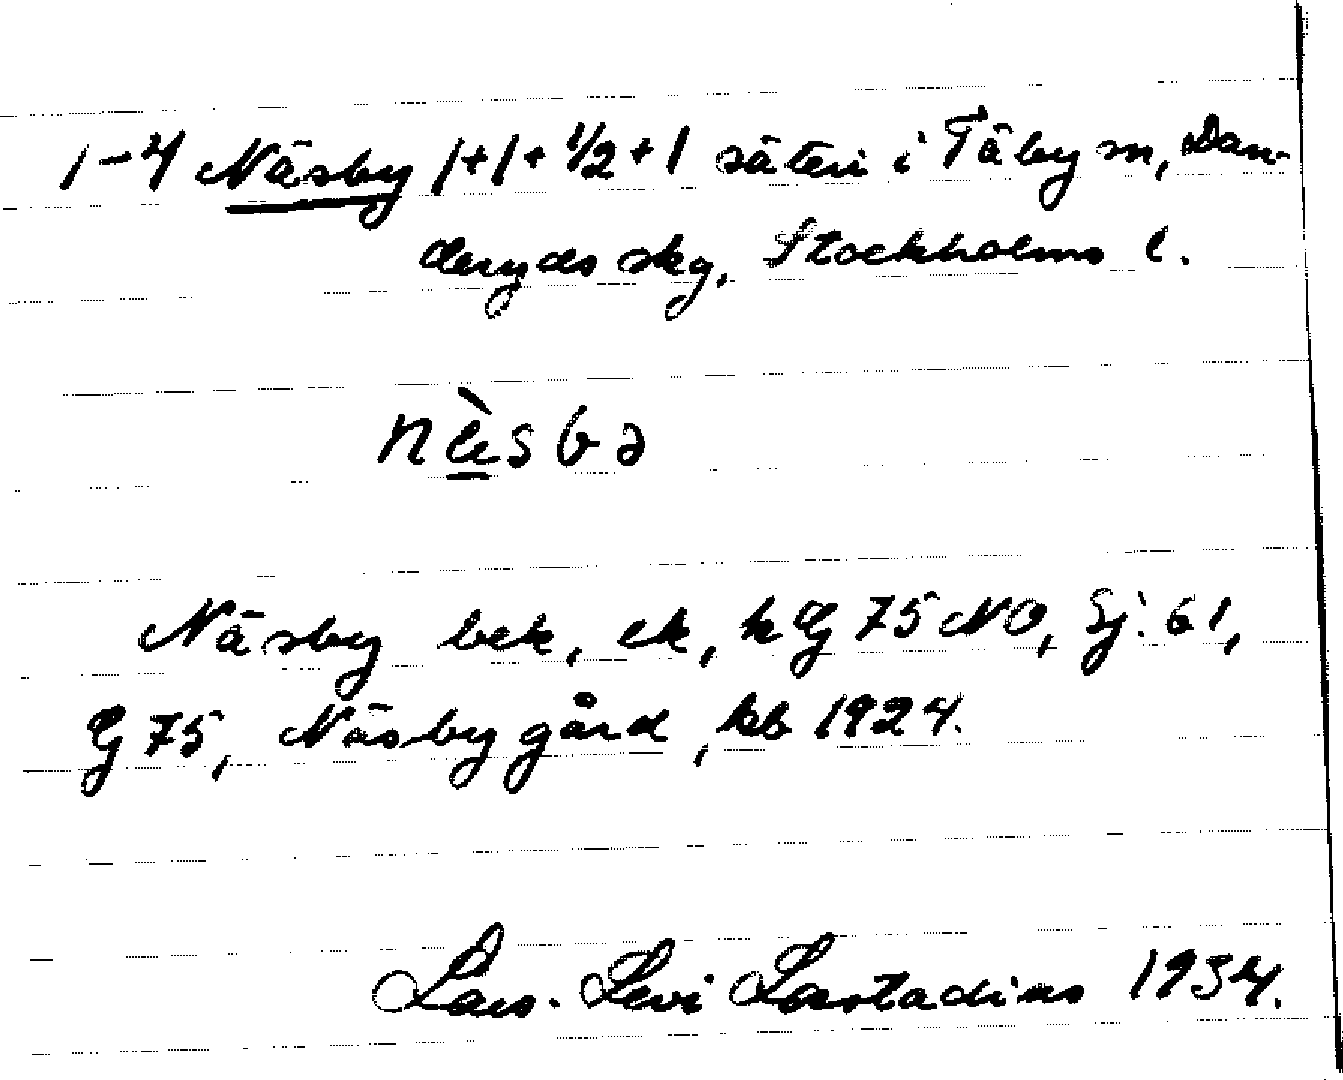 1-4 Näsby 1+1+1/2+1 säteri i Täby sn, Dan-
deryds skg, Stockholms l.
nä̀sbə
Näsby bek, ek, kG 75 NO, Sj: 61,
G 75, Näsby gård, kb 1924.
Lars-Levi Læstadius 1934.